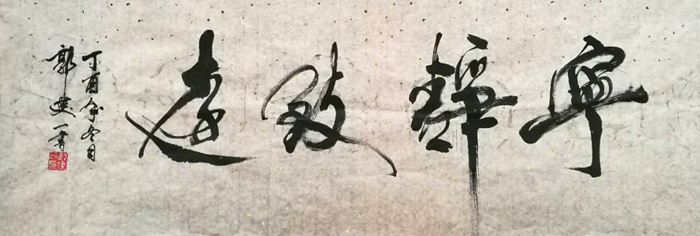 寧靜致遠
丁酉年冬月
郭一書